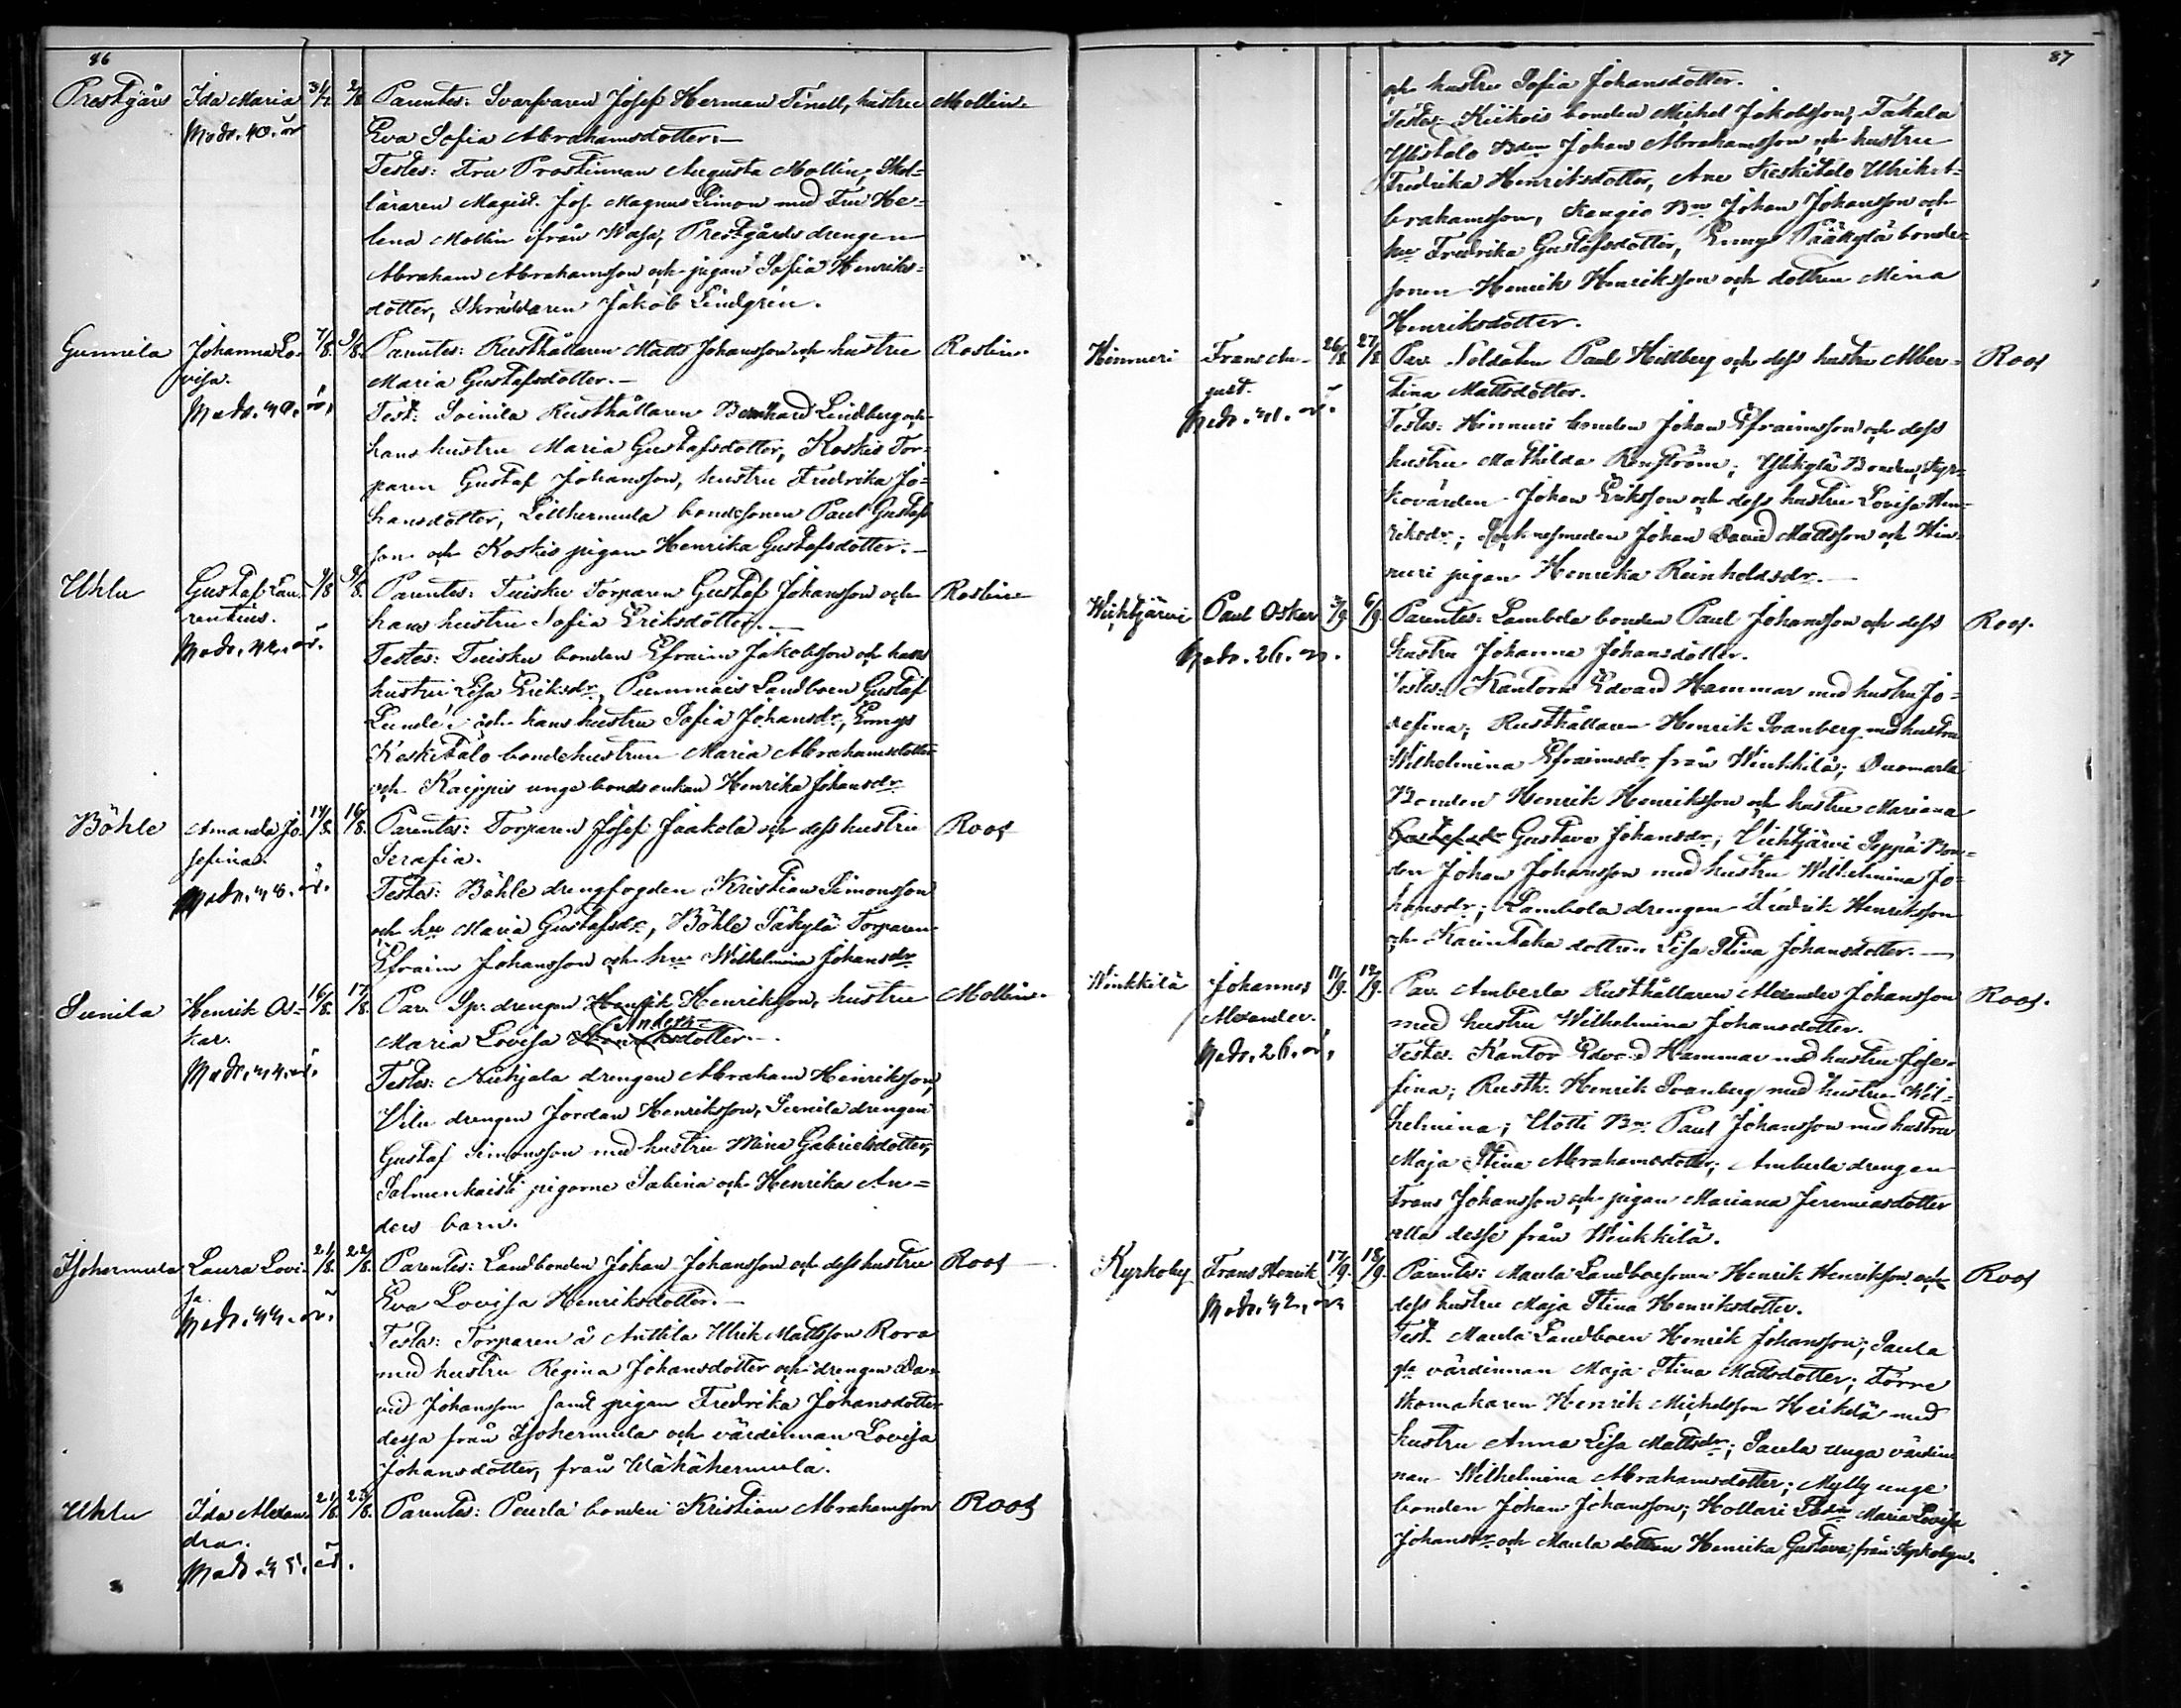 86
Prestgårs Ida Maria 31/7. 2/8. Parentes: Svarfvaren Josef Herman Tinell, hustru Mollin.
Modr. 40. år Eva Sofia Abrahamsdotter.—
Testes: Fru Prostinnan Augusta Mollin, Skol=
läraren Magist. Joh. Magnus Limon med Fru He=
lena Mollin ifrån Wasa, Prestgårds drengen
Abraham Abrahamsson och pigan Sofia Henriks=
dotter, Skräddaren Jakob Lindgrén.
Gunnila Johanna Lo- 7/8. 9/8. Parentes: Rusthållaren Matts Johansson och hustru Roslin.
visa. Maria Gustafsdotter.—
Modr. år, Test: Soinila Rusthållaren Bernhard Lindberg och
hans hustru Maria Gustafsdotter, Koskis Tor=
paren Gustaf Johansson, hustru Fredrika Jo=
hansdotter, Lillhermula bondesonen Paul Gustafs
son och Koskis pigan Henrika Gustafsdotter.—
Uhlu Gustaf Lau- 9/8 9/8. Parentes: Tuisku Torparen Gustaf Johansson och Roslin
rentius. hans hustru Sofia Eriksdotter.—
Modr. år. Testes: Tuisku bonden Efraim Jakobsson och hans
hustru Lisa Eriksdr, Pummais Landboen Gustaf
Lundén och hans hustru Sofia Johansdr, Ennys
Keskitalo bondehustrun Maria Abrahamsdotter
och Kaippis unge bonds enkan Henrika Johansdr
Böhle Amanda Jo- 14/8. 16/8. Parentes: Torparen Josef Jaakola och dess hustru Roos
sefina. Serafia.
Modr. år. Testes: Böhle drengfogden Kristian Simonsson
och hu Maria Gustafsdr, Böhle Säkylä Torparen
Efraim Johansson och hu Wilhelmina Johansdr
Sunila Henrik Os= 16/8. 17/8. Par. Sp. drengen Henrik Henriksson, hustru Mollin.
kar. Maria Lovisa Anders-dotter.—
Modr. år. Testes: Nuhjala drengen Abraham Henriksson,
Vilu drengen Jordan Henriksson, Sunila drengen
Gustaf Simonsson med hustru Mina Gabrielsdotter,
Salmenhaisti pigorna Sabina och Henrika An=
ders barn.
Isohermula Laura Lovi- 21/8. 22/8. Parentes: Landbonden Johan Johansson och dess hustru Roos
sa. Eva Lovisa Henriksdotter.—
Modr. år. Testes: Torparen å Anttila Ulrik Mattsson Rora
med hustru Regina Johansdotter och drengen Da=
vid Johansson samt pigan Fredrika Johansdotter
dessa från Isohermula och värdinnan Lovisa
Johansdotter, från Wähähermula.
Uhlu Ida Alexan- 21/8. 23/8. Parentes: Peurla bonden Kristian Abrahamsson Roos
dra.
Modr. år.
87
och hustru Sofia Johansdotter.
Testes: Kiikois bonden Michel Jakobsson, Takala
Ylistalo Bden Johan Abrahamsson och hustru
Fredrika Henriksdotter, Ane Keskitalo Ulrik A-
brahamsson, Kangio Bn Johan Johansson och
hu Fredrika Gustafsdotter, Ennys Pääkylä bonde=
sonen Henrik Henriksson och dottren Mina
Henriksdotter.
Hinnuri Frans Au- 26/8 27/8 Par. Soldaten Paul Hillberg och dess hustru Alber- Roos
gust. tina Mattsdotter.
Modr. år. Testes: Hinnuri bonden Johan Efraimsson och dess
hustru Mathilda Renström; Ylikylä Bonden, Kyr-
kovärden Johan Eriksson och dess hustru Lovisa Hen-
riksdr; Socknesmeden Johan David Mattsson och Hin-
nuri pigan Henrika Reinholdsdr.—
Wiihtjärvi Paul Oskar 3/9. 6/9. Parentes: Lambola bonden Paul Johansson och dess Roos.
Modr. 26. år. hustru Johanna Johansdotter.
Testes: Kantorn Edvard Hammar med hustru Jo=
sefina; Rusthållaren Henrik Svanberg med hustru
Wilhelmina Efraimsdr från Winkkilä; Duomarla
Bonden Henrik Henriksson och hustru Mariana
Gustafsdr Gustava Johansdr; Viihtjärvi Seppä Bon=
den Johan Johansson med hustru Wilhelmina Jo=
hansdr; Lambola drengen Fredrik Henriksson
och Karintaka dottren Lisa Stina Johansdotter.—
Winkkilä Johannes 11/9. 12/9. Par. Amberla Rusthållaren Alexander Johansson Roos.
Alexander. med hustru Wilhelmina Johansdotter.
Modr. 26. år, Testes: Kantor Edvard Hammar med hustru Jose-
fina; Rusth. Henrik Svanberg med hustru Wil=
helmina; Uotti Bn Paul Johansson med hustru
Maja Stina Abrahamsdotter; Amberla drengen
Frans Johansson och pigan Mariana Jeremiasdotter
alla desse från Winkkilä.
Kyrkoby Frans Henrik 17/9. 18/9. Parentes: Maula Landboesonen Henrik Henriksson och Roos
Modr. år dess hustru Maja Stina Henriksdotter.
Test. Maula Landboen Henrik Johansson; Saula
gla värdinnan Maja Stina Mattsdotter; Torre
skomakaren Henrik Michelsson Heikelä med
hustru Anna Lisa Mattsdr; Saula unga värdin
nan Wilhelmina Abrahamsdotter; Mylly unge
bonden Johan Johansson; Hollari Maria Lovisa
Johansdr och Maula dottren Henrika Gustava, från Kyrkobyn.